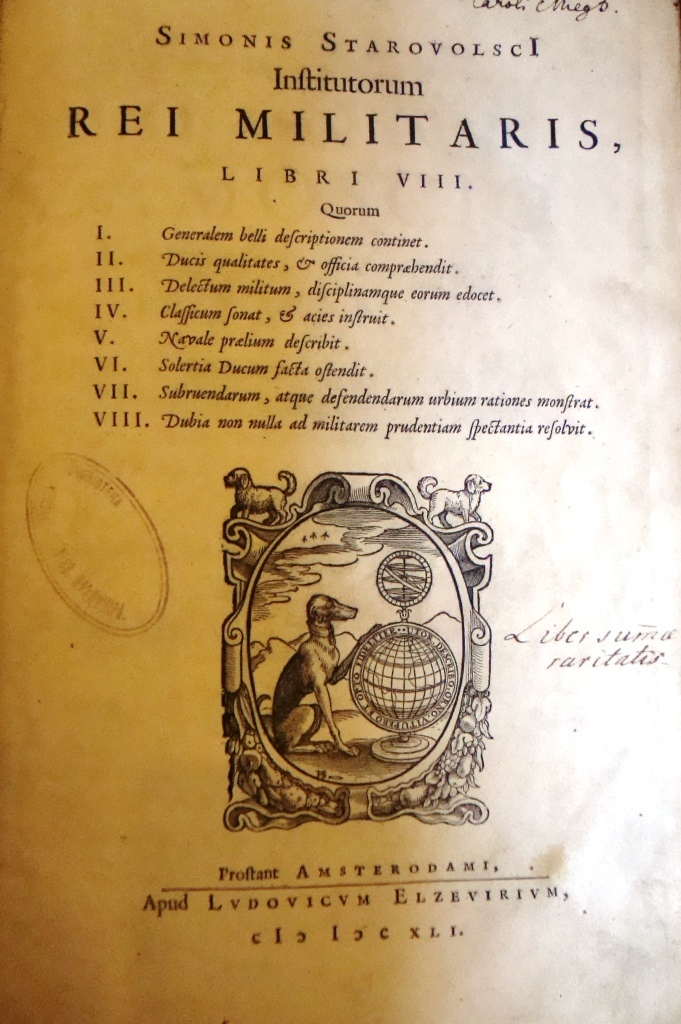 Caroli
SIMONIS STAROVOLSCI
Inſtitutorum
REI MILITARIS,
LIBRI VIII.
Quorum
I. Generalem belli deſcriptionem continet.
II. Ducis qualitates, & officia compræhendit.
III. Delectum militum, diſciplinamque eorum edocet.
IV. Claſſicum ſonat, & acies inſtruit.
V. Navale prælium deſcribit.
VI. Solertia Ducum facta oſtendit.
VII. Subruendarum, atque defendendarum urbium rationes monſtrat.
VIII. Dubia non nulla ad militarem prudentiam ſpectantia reſolvit.
UTOR DESCRIBO ORNO VITUPERO ET OPTO
Liber sum̄æ
raritatis
Proſtant AMSTERODAMI,
Apud LVDOVICVM ELZEVIRIVM,
cIɔ Iɔc XLI.